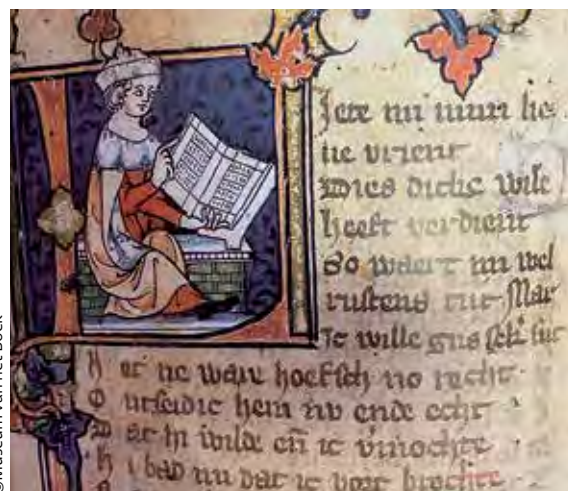 ©Museum van het Boek
Jete mi mijn lie
ue vrient
Dies dicke wile
heeft verdient
So waert mi wel
rustens tijt Mar
Jc wille
h et ne ware hoefsch no recht
O ntseidic hem nv ende echt
D at hi wilde eñ ic vmochte
h i bad mi dat ic vort brochte